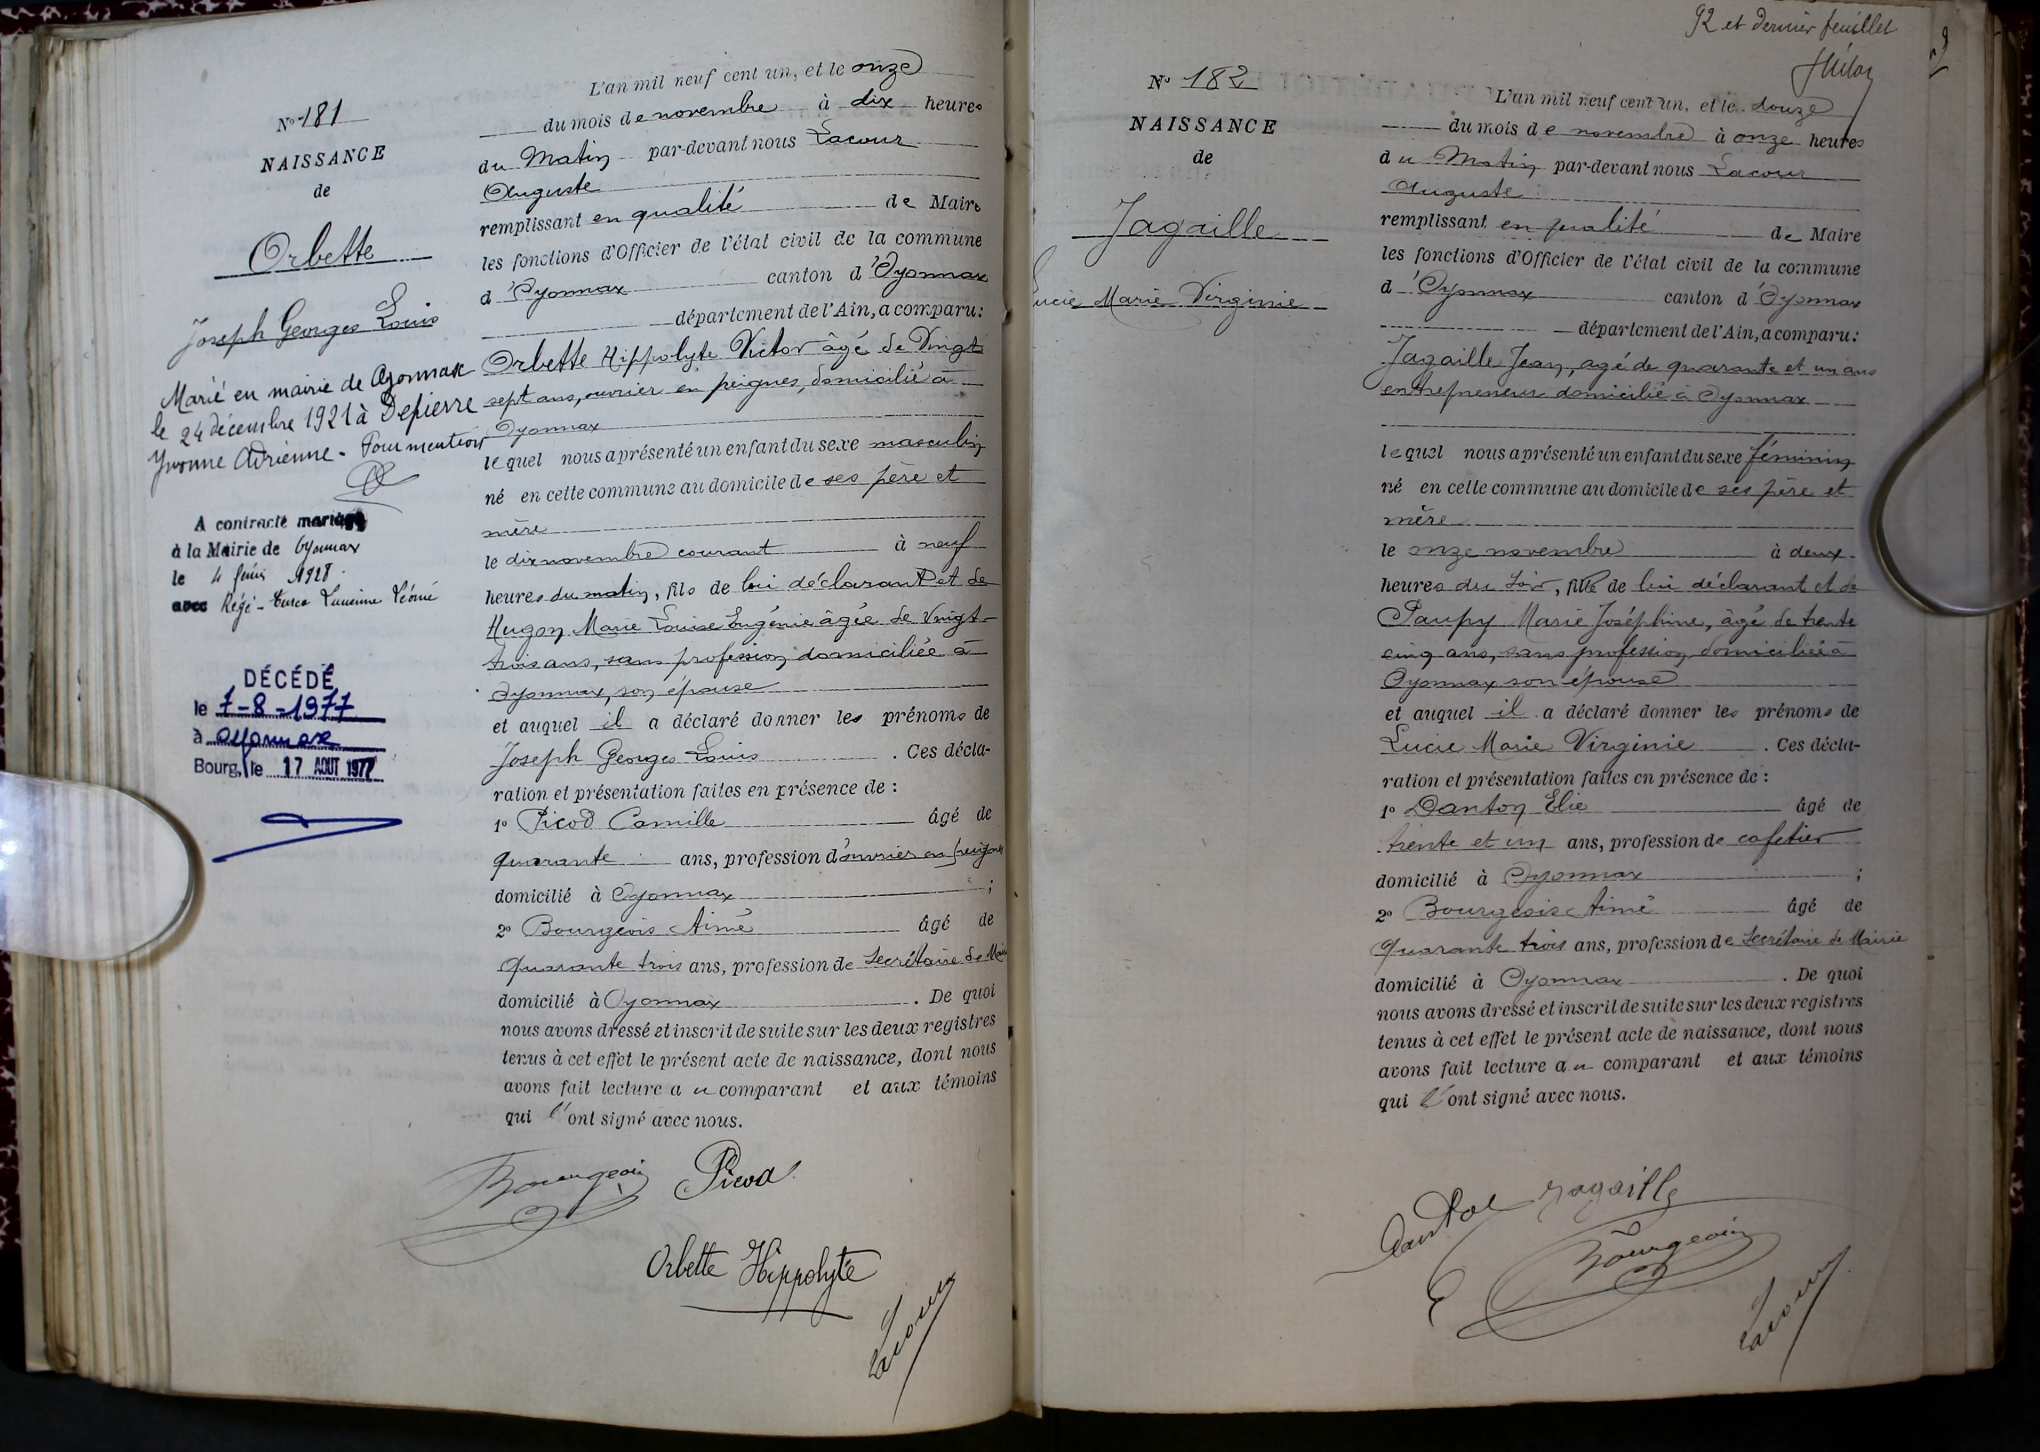 N° 181
NAISSANCE
de
Orbette
Joseph Georges Louis
Marié en mairie de Oyonnax
le 24 décembre 1921 à Depierre
Yvonne Adrienne - Pour mention
A contracté mariage
à la Mairie de Oyonnax
le 4 1928
avec Lucienne
DÉCÉDÉ
le 7-8-1977
à Oyonnax
Bourg, le 17 AOUT 1977
L'an mil neuf cent un, et le onze
du mois de novembre à dix heures
du Matin par-devant nous Lacour
Auguste
remplissant en qualité de Maire
les fonctions d'Officier de l'état civil de la commune
d'Oyonnax canton d'Oyonnax
département de l'Ain, a comparu:
Orbette Hippolyte Victor âgé de Vingt
sept ans, ouvrier en peignes, domicilié à
Oyonnax
lequel nous a présenté un enfant du sexe masculin
né en cette commune au domicile de ses père et
mère
le dix novembre courant à neuf
heures du matin, fils de lui déclarant et de
Hugon Marie Louise Eugénie âgée de Vingt-
trois ans, sans profession domiciliée à
Oyonnax, son épouse
et auquel il a déclaré donner les prénoms de
Joseph Georges Louis . Ces décla-
ration et présentation faites en présence de :
1° Picod Camille âgé de
quarante ans, profession d'ouvrier en peignes
domicilié à Oyonnax ;
2° Bourgeois Aimé âgé de
Quarante trois ans, profession de Secrétaire de Mairie
domicilié à Oyonnax . De quoi
nous avons dressé et inscrit de suite sur les deux registres
tenus à cet effet le présent acte de naissance, dont nous
avons fait lecture au comparant et aux témoins
qui l'ont signé avec nous.
Bourgeois Picod
Orbette Hippolyte
Lacour
92 et dernier feuillet
N° 182
NAISSANCE
de
Jagaille
Lucie Marie Virginie
L'an mil neuf cent un, et le douze
du mois de novembre à onze heures
du Matin par-devant nous Lacour
Auguste
remplissant en qualité de Maire
les fonctions d'Officier de l'état civil de la commune
d'Oyonnax canton d'Oyonnax
département de l'Ain, a comparu:
Jagaille Jean, agé de quarante et un ans
entrepreneur domicilié à Oyonnax
lequel nous a présenté un enfant du sexe féminin
né en cette commune au domicile de ses père et
mère
le onze novembre à deux
heures du soir, fille de lui déclarant et de
Paupy Marie Joséphine, âgé de trente
cinq ans, sans profession, domiciliée à
Oyonnax son épouse
et auquel il a déclaré donner les prénoms de
Lucie Marie Virginie . Ces décla-
ration et présentation faites en présence de :
1° Danton Elie âgé de
trente et un ans, profession de cafetier
domicilié à Oyonnax ;
2° Bourgeois Aimé âgé de
Quarante trois ans, profession de Secrétaire de Mairie
domicilié à Oyonnax . De quoi
nous avons dressé et inscrit de suite sur les deux registres
tenus à cet effet le présent acte de naissance, dont nous
avons fait lecture au comparant et aux témoins
qui l'ont signé avec nous.
Jagaille
Bourgeois
Lacour